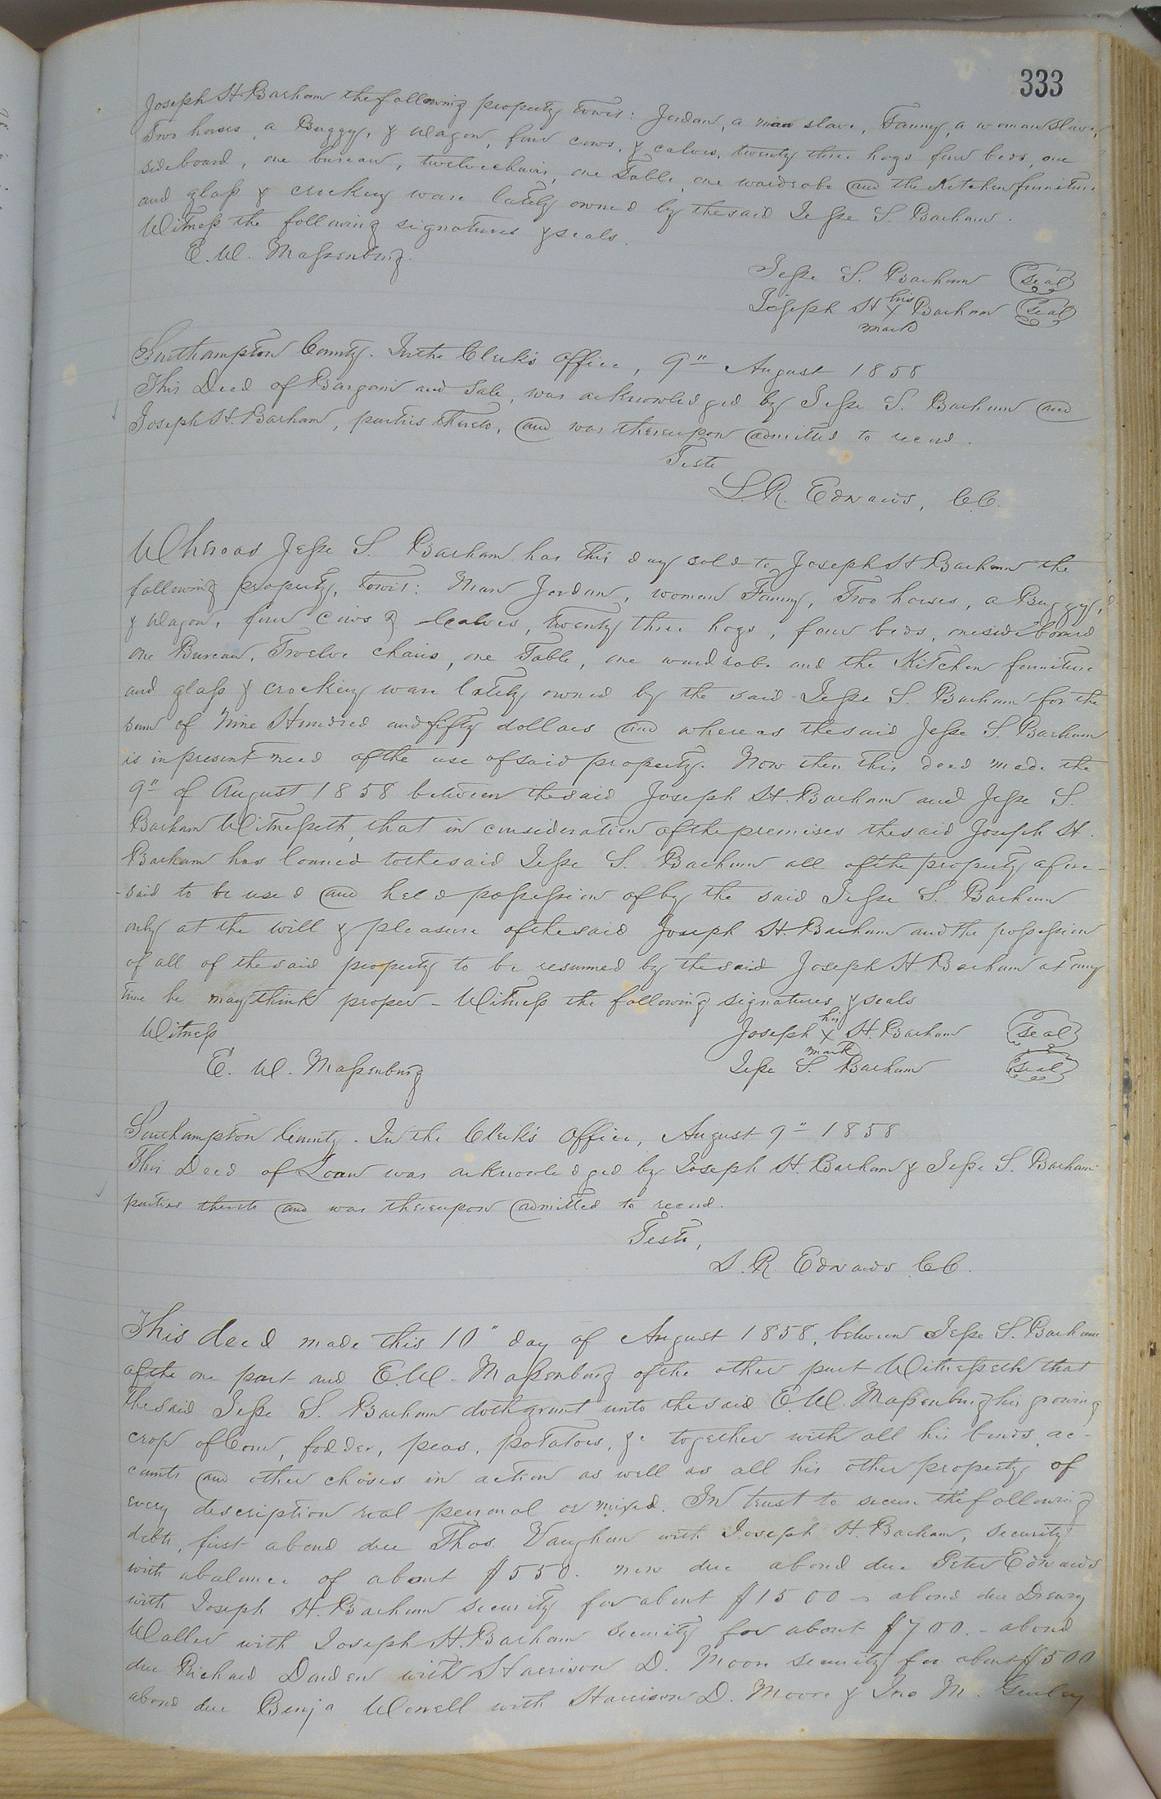 333
Joseph H. Barham the following property towit: Jordan, a man slave, Fanny, a woman slave,
Two horses, a Buggy, & Wagon, four cows, & calves, twenty three hogs four beds, one
sideboard, one bureau, twelve chairs, one Table, one wardrobe and the Kitchen furniture
and glass & crockery ware lately owned by the said Jesse S. Barham.
Witness the following signatures & seals.
E. W. Massenburg.
Jesse S. Barham (seal)
Joseph H his X mark Barham (seal)
Southampton County. In the Clerk's Office, 9" August 1858
This Deed of Bargain and Sale, was acknowledged by Jesse S. Barham and
Joseph H. Barham, parties thereto, and was thereupon admitted to record.
Teste
L. R. Edwards, C.C.
Whereas Jesse S. Barham has this day sold to Joseph H Barham the
following property, towit: Man Jordan, woman Fanny, Two horses, a Buggy,
& Wagon, four cows & Calves, twenty three hogs, four beds, one sideboard
one Bureau, Twelve chairs, one Table, one wardrobe and the Kitchen furniture
and glass & crockery ware lately owned by the said Jesse S. Barham for the
sum of Nine Hundred and fifty dollars and whereas the said Jesse S. Barham
is in present need of the use of said property. Now then this deed made the
9" of August 1858 between the said Joseph H. Barham and Jesse S.
Barham Witnesseth, that in consideration of the premises the said Joseph H.
Barham has loaned to the said Jesse S. Barham all of the property afore-
-said to be used and held possession of by the said Jesse S. Barham
only at the will & pleasure of the said Joseph H. Barham and the possession
of all of the said property to be resumed by the said Joseph H Barham at any
time he may think proper - Witness the following signatures & seals
Witness
Joseph his X mark H. Barham (seal)
E. W. Massenburg
Jesse S. Barham (seal)
Southampton County. In the Clerk's Office, August 9" 1858
This Deed of Loan was acknowledged by Joseph H. Barham & Jesse S. Barham
parties thereto and was thereupon admitted to record.
Teste,
L. R. Edwards C.C.
This deed made this 10" day of August 1858, between Jesse S. Barham
of the one part and E. W. Massenburg of the other part Witnesseth that
the said Jesse S. Barham doth grant unto the said E. W. Massenburg his growing
crop of Corn, fodder, peas, potatoes, &c together with all his bonds, ac-
counts and other choses in action as well as all his other property of
every description real personal or mixed. In trust to secure the following
debts, first a bond due Thos. Vaughan with Joseph H. Barham, security
with a balance of about $550. now due a bond due Peter Edwards
with Joseph H. Barham security for about $1500 - a bond due Drewry
Waller with Joseph H. Barham security for about $700. - a bond
due Richard Darden with Harrison D. Moore security for about $500
a bond due Benja Worrell with Harrison D. Moore & Jno M. Gurley